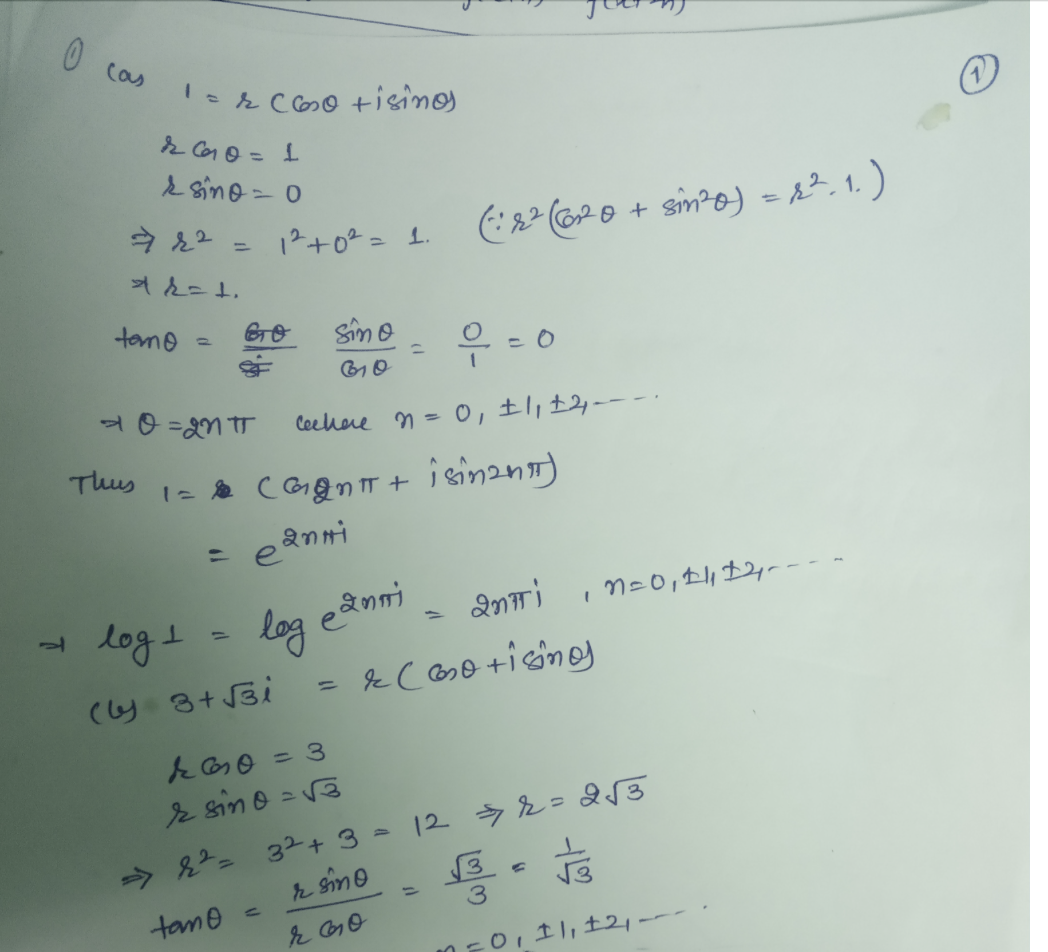 ① (a) 1 = r (cosθ + i sinθ) ①
r cosθ = 1
r sinθ = 0
⇒ r² = 1² + 0² = 1. (∵ r² (cos²θ + sin²θ) = r². 1.)
⇒ r = 1.
tanθ = sinθ/cosθ = 0/1 = 0
⇒ θ = 2nπ where n = 0, ±1, ±2, ----.
Thus 1 = (cos2nπ + i sin2nπ)
= e^{2nπi}
⇒ log 1 = log e^{2nπi} = 2nπi , n = 0, ±1, ±2, ----
(b) 3 + √3i = r (cosθ + i sinθ)
r cosθ = 3
r sinθ = √3
⇒ r² = 3² + 3 = 12 ⇒ r = 2√3
tanθ = r sinθ/r cosθ = √3/3 = 1/√3
n = 0, ±1, ±2, ----.